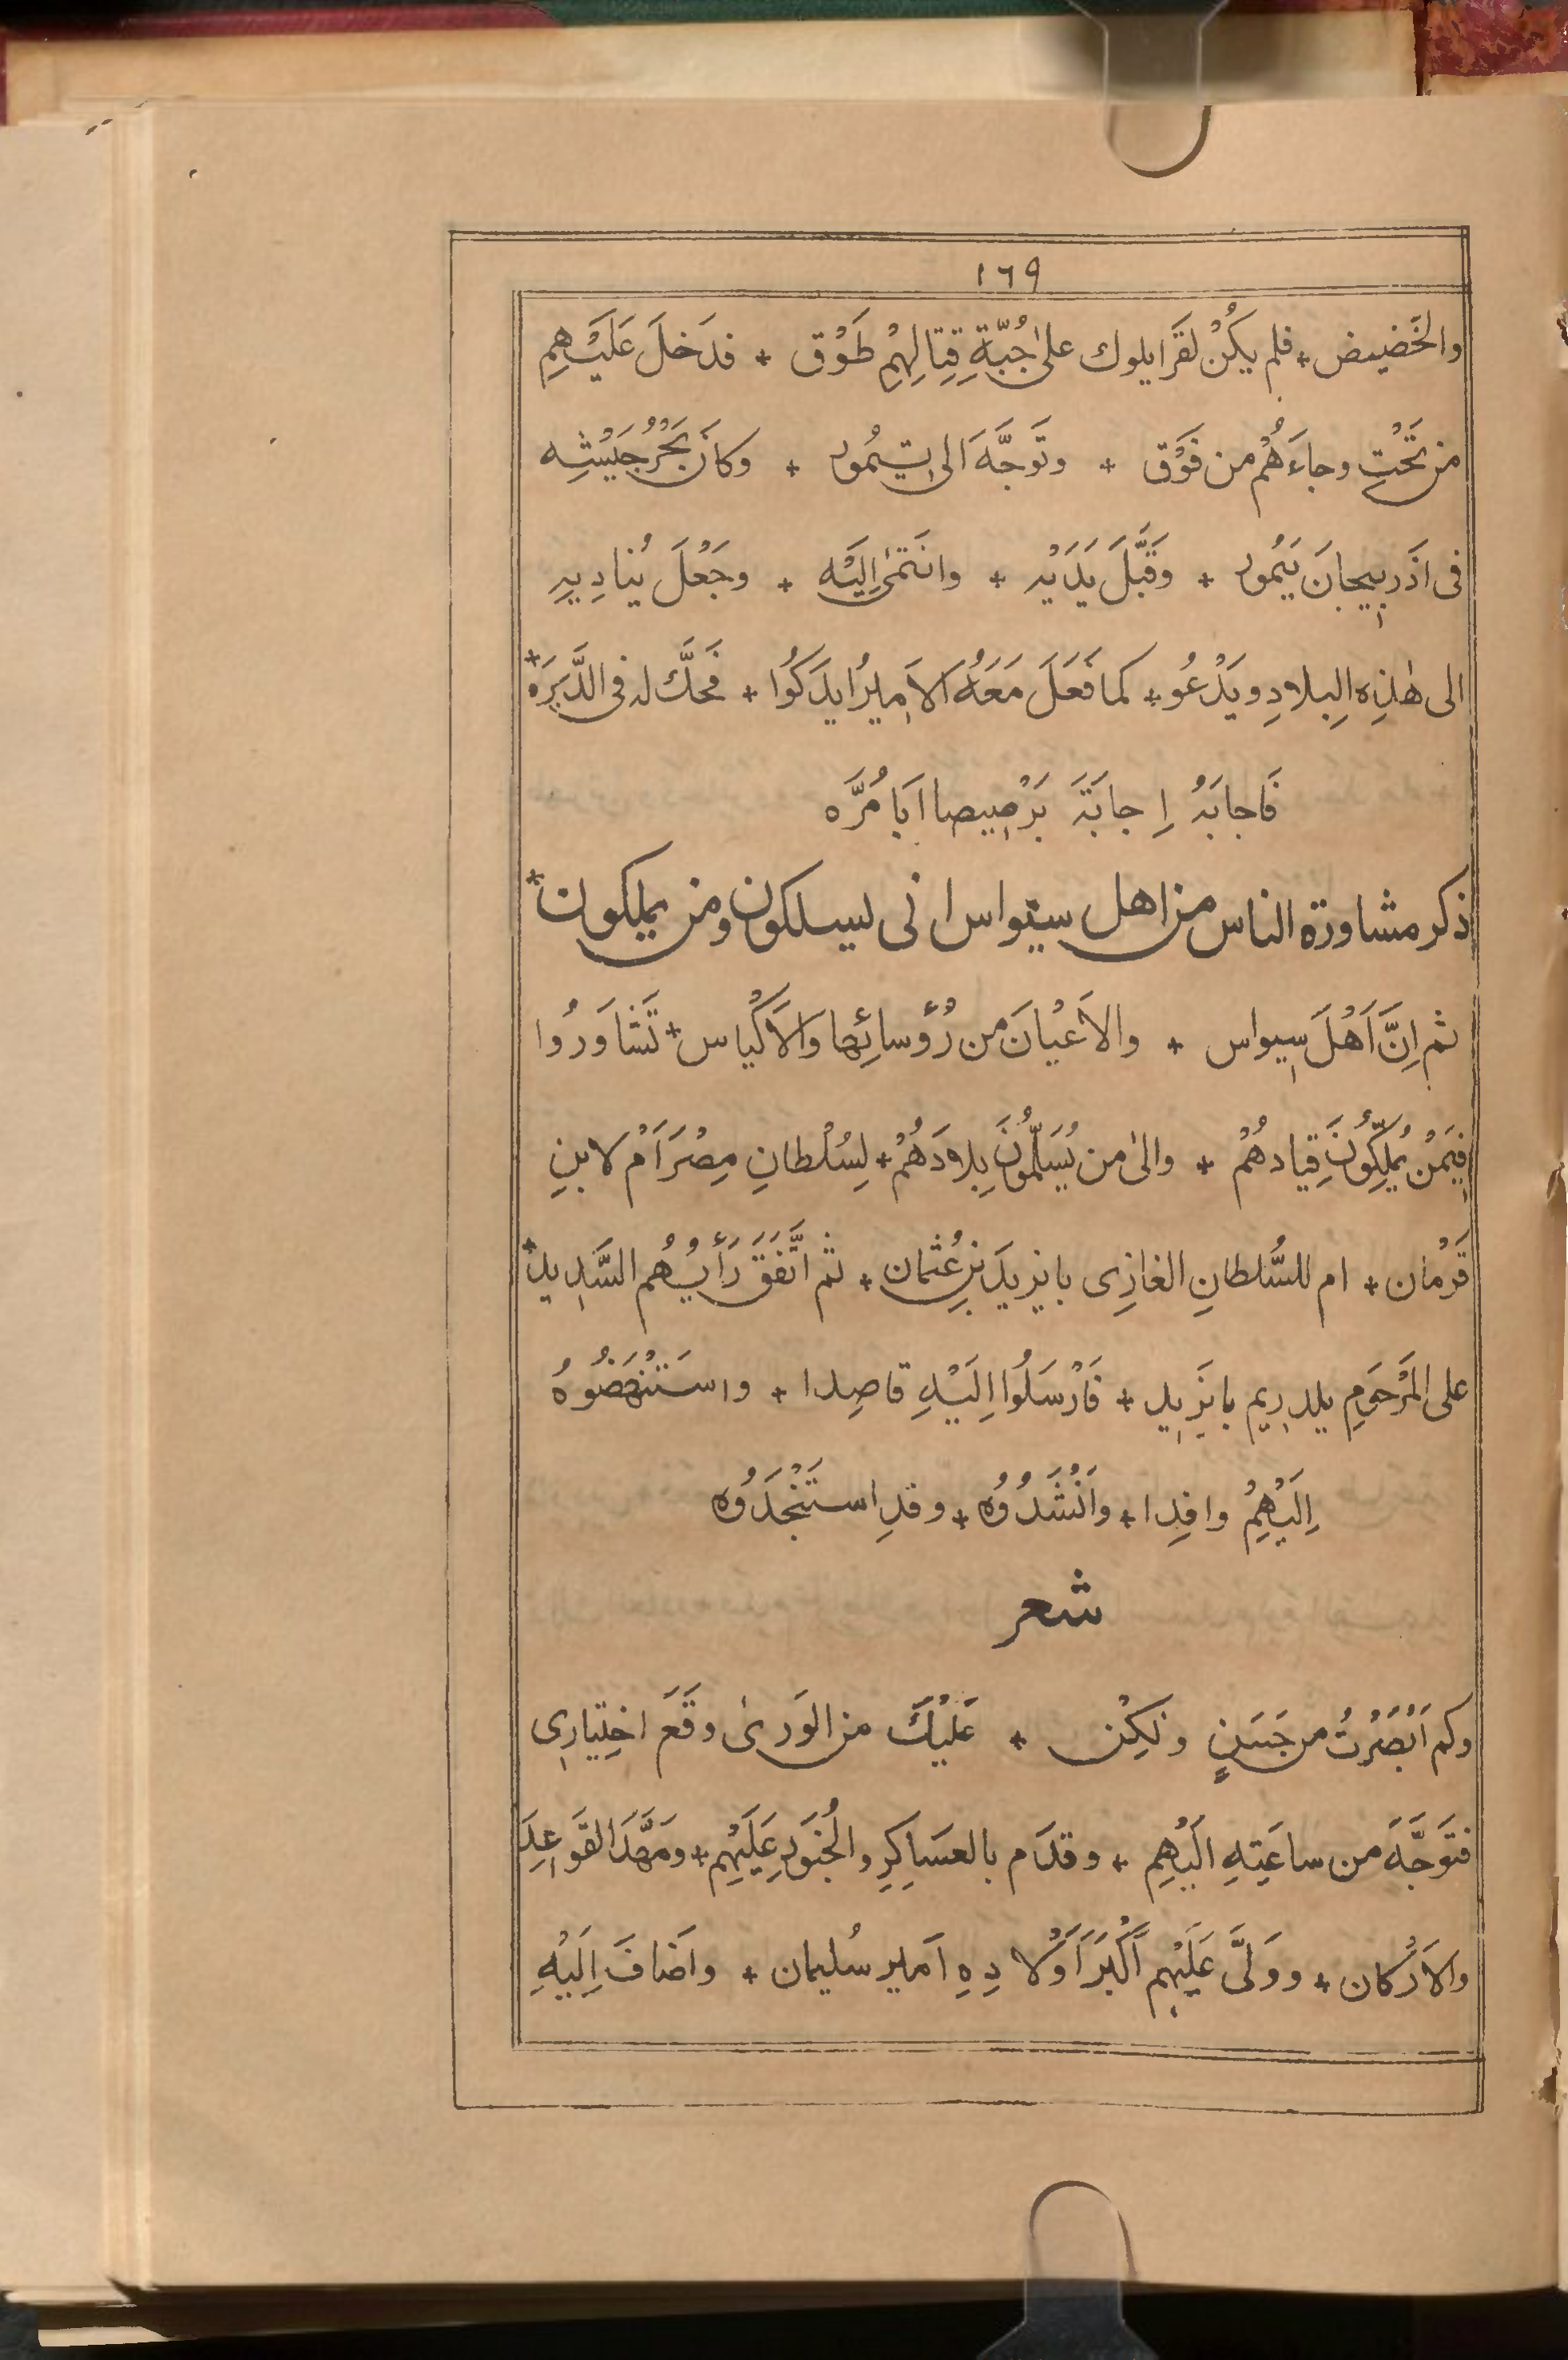 ١٦٩
والحَضيض * فلم يكُنْ لقَرايلوك علىٰ جُبَّةِ قِتالِهِمْ طَوْق * فدَخلَ عَلَيْهِم
من تَحْتِ وجاءَهُمْ من فَوْق * وتَوجَّهَ الى تيمُور * وكانَ بَحْرُ جَيْشِه
فى اَذَربيجانَ يَمُور * وقَبَّلَ يَدَيْه * وانْتَمٰى اِلَيْه * وجَعْلَ يُنادِيهِ
الى هٰذِه البِلادِ ويَدْعُو * كما فَعَلَ مَعَهُ الاَميرُ ايدَكُوا * فحَكَّ له فى الدَّبَرَة *
فَاجابَهُ اِجابَةَ بَرْصيصا اَبا مُرَّه
ذكر مشاورة الناس من اهل سيواس انى يسلكون ومن يملكون *
ثم اِنَّ اَهْلَ سيواس * والاَعْيانَ من رُؤسائِها وَالاَكْياس * تَشاوَرُوا
فيمَنْ يُمَلِّكُونَ قِيادهُمْ * والىٰ من يُسَلِّمُونَ بِلادَهُمْ * لِسُلْطانِ مِصْرَ اَمْ لابنِ
قَرْمان * ام للسُّلطانِ الغازِى بايزيدَ بنِ عُثمان * ثم اتَّفَقَ رَأْيُهُم السَّديد *
على المَرْحَومِ يلدريم بايَزيد * فَارْسَلُوا اِلَيْهِ قاصِدا * واسَتَنْهَضُوهُ
اِلَيْهِمْ وافِدا * واَنْشَدُوُه * وقدِ استَنْجَدُوُه
شعر
وكم اَبْصَرْتُ من حَسَنٍ ولٰكِنْ * عَلَيْكَ من الوَرىٰ وقَعَ اختِيارِى
فتَوَجَّهَ من ساعَتِهِ اليْهِم * وقدَم بالعسَاكِرِ والجُنوَدِ عَلَيْهِم * ومَهَّدَ القَواعِدَ
والاَرْكان * ووَلىَّ عَلَيْهِم اَكْبَرَ اَوْلادِهِ اَمير سُليمان * واَضافَ اِلَيْهِ